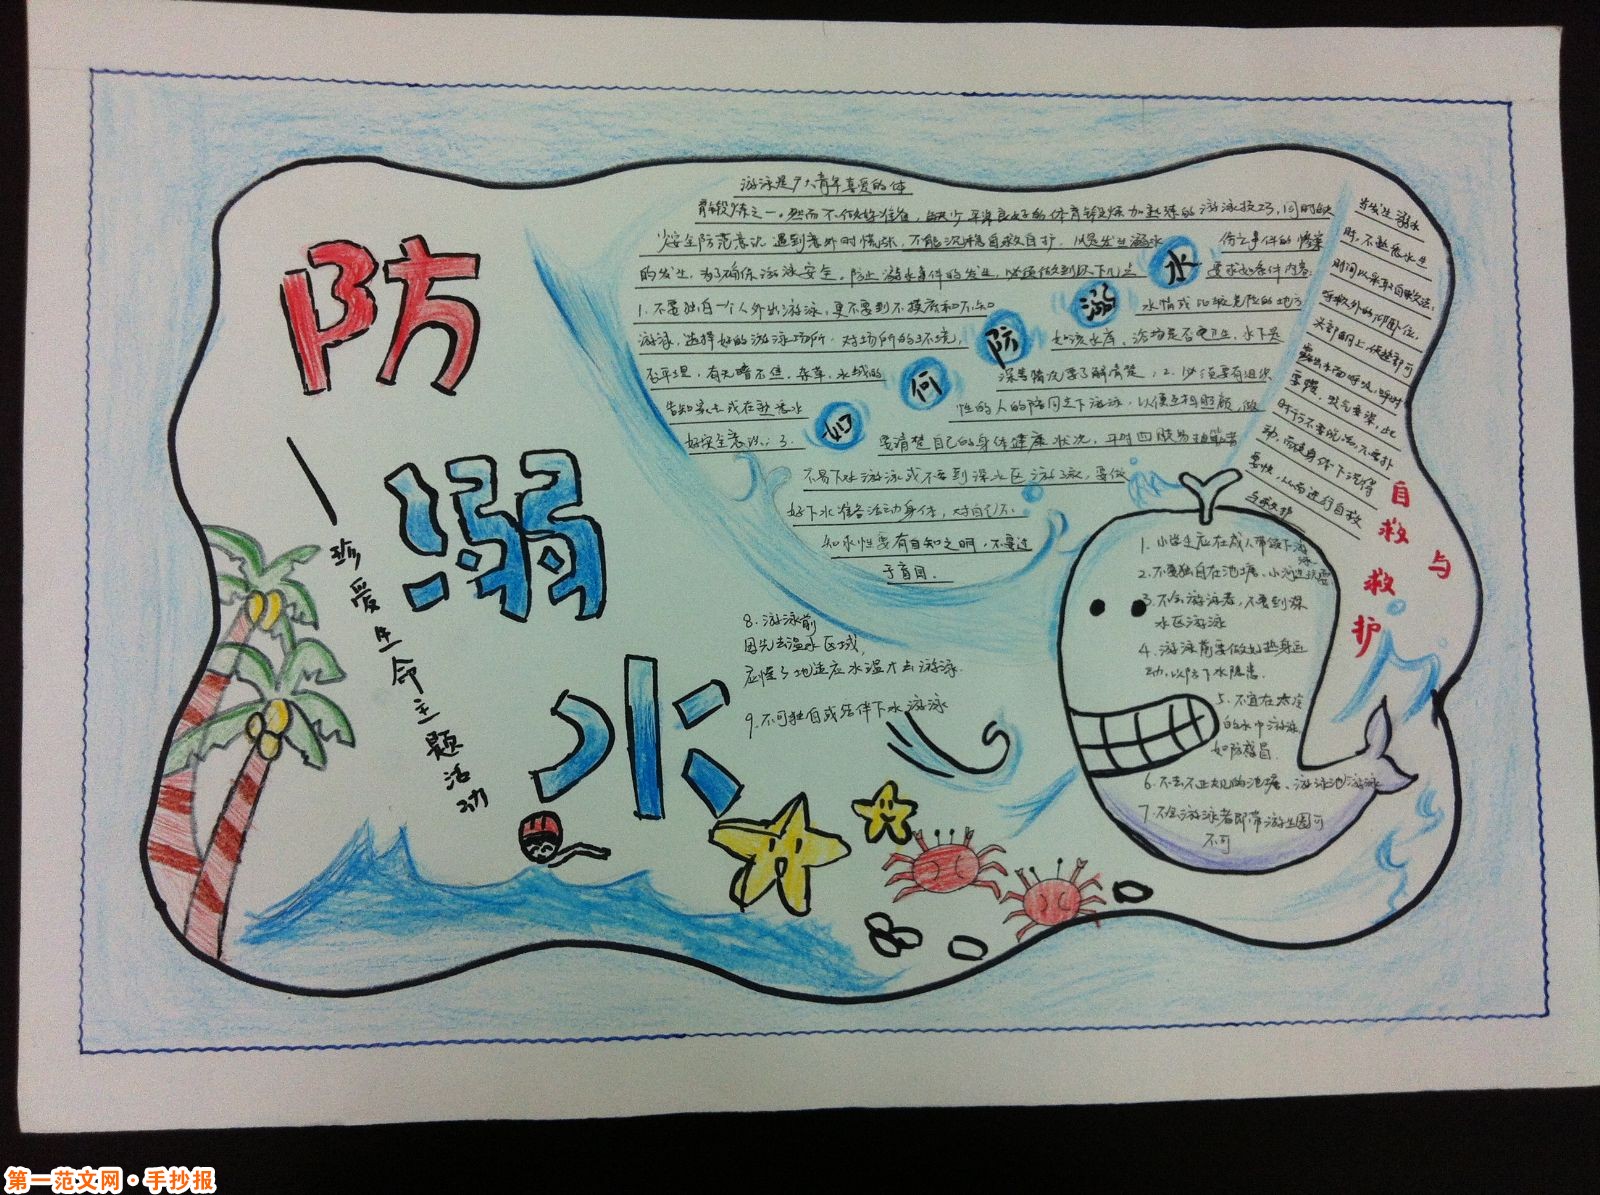 防
溺
水
珍爱生命主题活动
游泳是广大青年喜爱的体
育锻炼之一。然而不做好准备,缺少平常良好的体育锻炼加熟练的游泳技巧,同时缺
少安全防范意识 遇到意外时慌张,不能沉稳自救自护,
伤亡事件的惨案
的发生,为了确保游泳安全,防止溺水事件的发生,必须做到以下几点
要求如条件内容:
1.不要独自一个人外出游泳,更不要到不摸底和不知
水情或比较危险的地方
游泳,选择好的游泳场所,对场所的环境,
如该水库、浴场是否卫生,水下是
否平坦,有无暗
杂草,水域的
深等情况要了解清楚,2.必须要有组织
性的人的陪同之下游泳,以便互相照顾,做
好安全意识;3.
要清楚自己的身体健康状况,平时四肢易抽筋者
不易下处游泳或不要到深水区游泳,要做
好下水准备活动身体,对自己不
知水性要有自知之明,不要过
于盲目.
如何防溺水
当发生溺水
时,不熟悉水性
头部朝上,使鼻部可
露出水面呼吸,呼时
要浅,吸气要深,此
时千万不要慌张,不要扑
动,而使身体下沉得
要快,从而进行自救
自救与救护
1.小学生应在成人带领下游泳
2.不要独自在池塘、小河边玩
3.不会游泳者,不要到深
水区游泳
4.游泳前要做好热身运
动,以防下水隐患.
5.不宜在太凉
的水中游泳
如防感冒.
6.不去不正规的池塘、游泳池游泳
7.不会游泳者即带游生圈可
不可
8.游泳前
因先去温水区域,
应性了地适应水温才去游泳.
9.不可独自或结伴下水游泳
第一范文网·手抄报